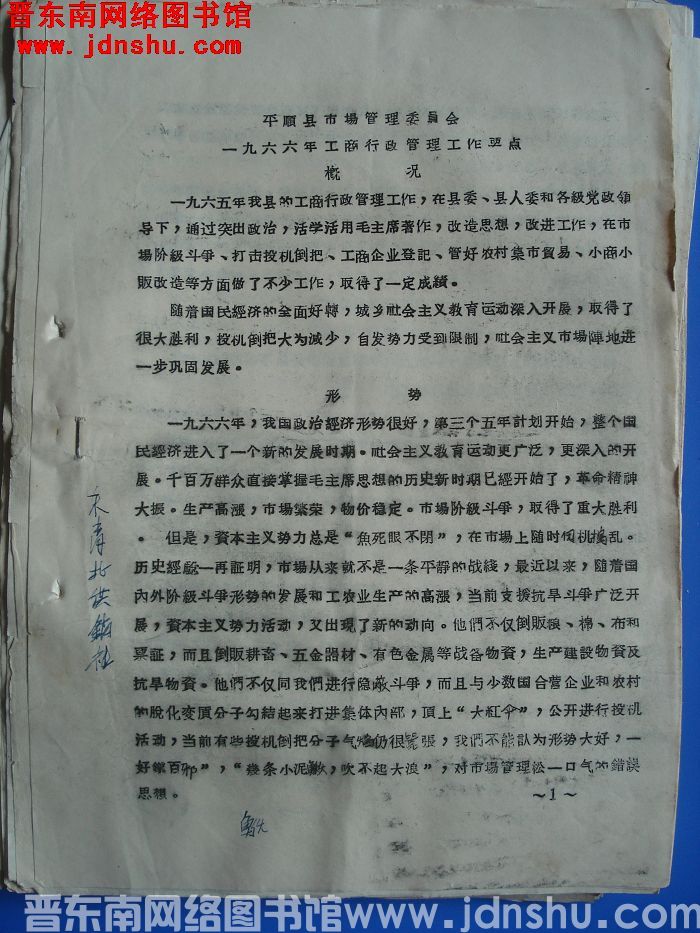 晋东南网络图书馆
www.jdnshu.com
平順县市場管理委員会
一九六六年工商行政管理工作要点
概 况
一九六五年我县的工商行政管理工作，在县委、县人委和各級党政领
导下，通过突出政治，活学活用毛主席著作，改造思想，改进工作，在市
場阶級斗爭、打击投机倒把、工商企业登記、管好农村集市貿易、小商小
販改造等方面做了不少工作，取得了一定成績。
随着国民經济的全面好轉，城乡社会主义教育运动深入开展，取得了
很大胜利，投机倒把大为减少，自发势力受到限制，社会主义市場陣地进
一步巩固发展。
形 势
一九六六年，我国政治經济形势很好，第三个五年計划开始，整个国
民經济进入了一个新的发展时期。社会主义教育运动更广泛，更深入的开
展。千百万群众直接掌握毛主席思想的历史新时期已經开始了，革命精神
大振。生产高漲，市場繁荣，物价稳定。市場阶級斗爭，取得了重大胜利
。但是，資本主义势力总是“魚死眼不閉”，在市場上随时伺机搗乱。
历史經驗一再証明，市場从来就不是一条平靜的战綫，最近以来，随着国
內外阶級斗爭形势的发展和工农业生产的高漲，当前支援抗旱斗爭广泛开
展，資本主义势力活动，又出現了新的动向。他們不仅倒販粮、棉、布和
票証，而且倒販耕畜、五金器材、有色金属等战备物資，生产建設物資及
抗旱物資。他們不仅同我們进行隐蔽斗爭，而且与少数国合营企业和农村
的脫化变質分子勾結起来打进集体內部，頂上“大紅伞”，公开进行投机
活动，当前有些投机倒把分子气焰仍很囂張，我們不能認为形势大好，一
好遮百邪”，“幾条小泥鰍，吹不起大浪”，对市場管理松一口气的錯誤
思想。
～1～
晋东南网络图书馆www.jdnshu.com